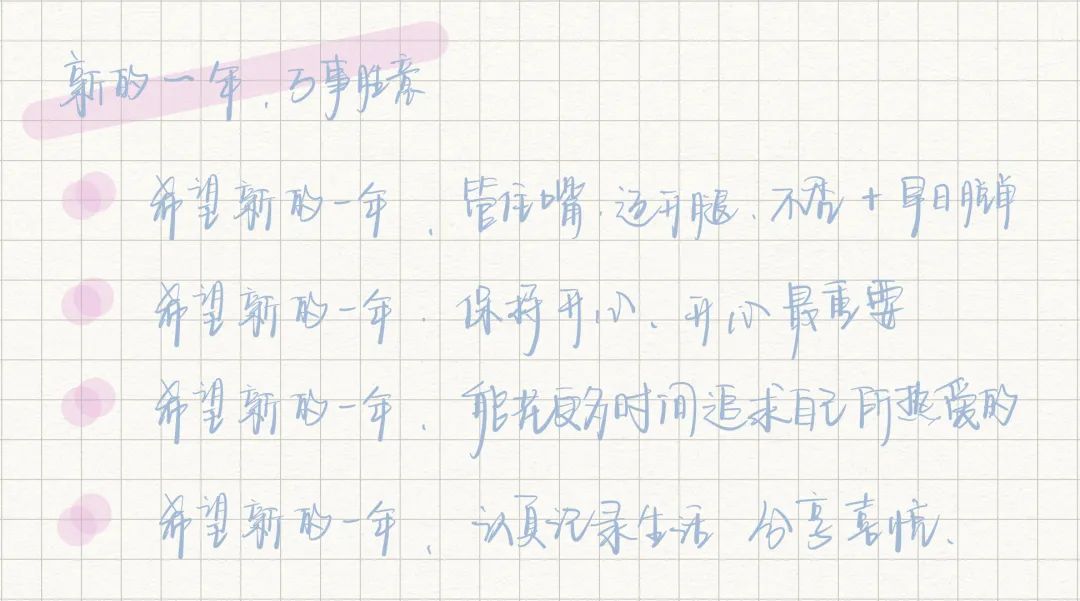 新的一年，万事胜意
希望新的一年，管住嘴，迈开腿，不秃+早日脱单
希望新的一年，保持开心，开心最重要
希望新的一年，能花更多时间追求自己所热爱的
希望新的一年，认真记录生活 分享喜悦.